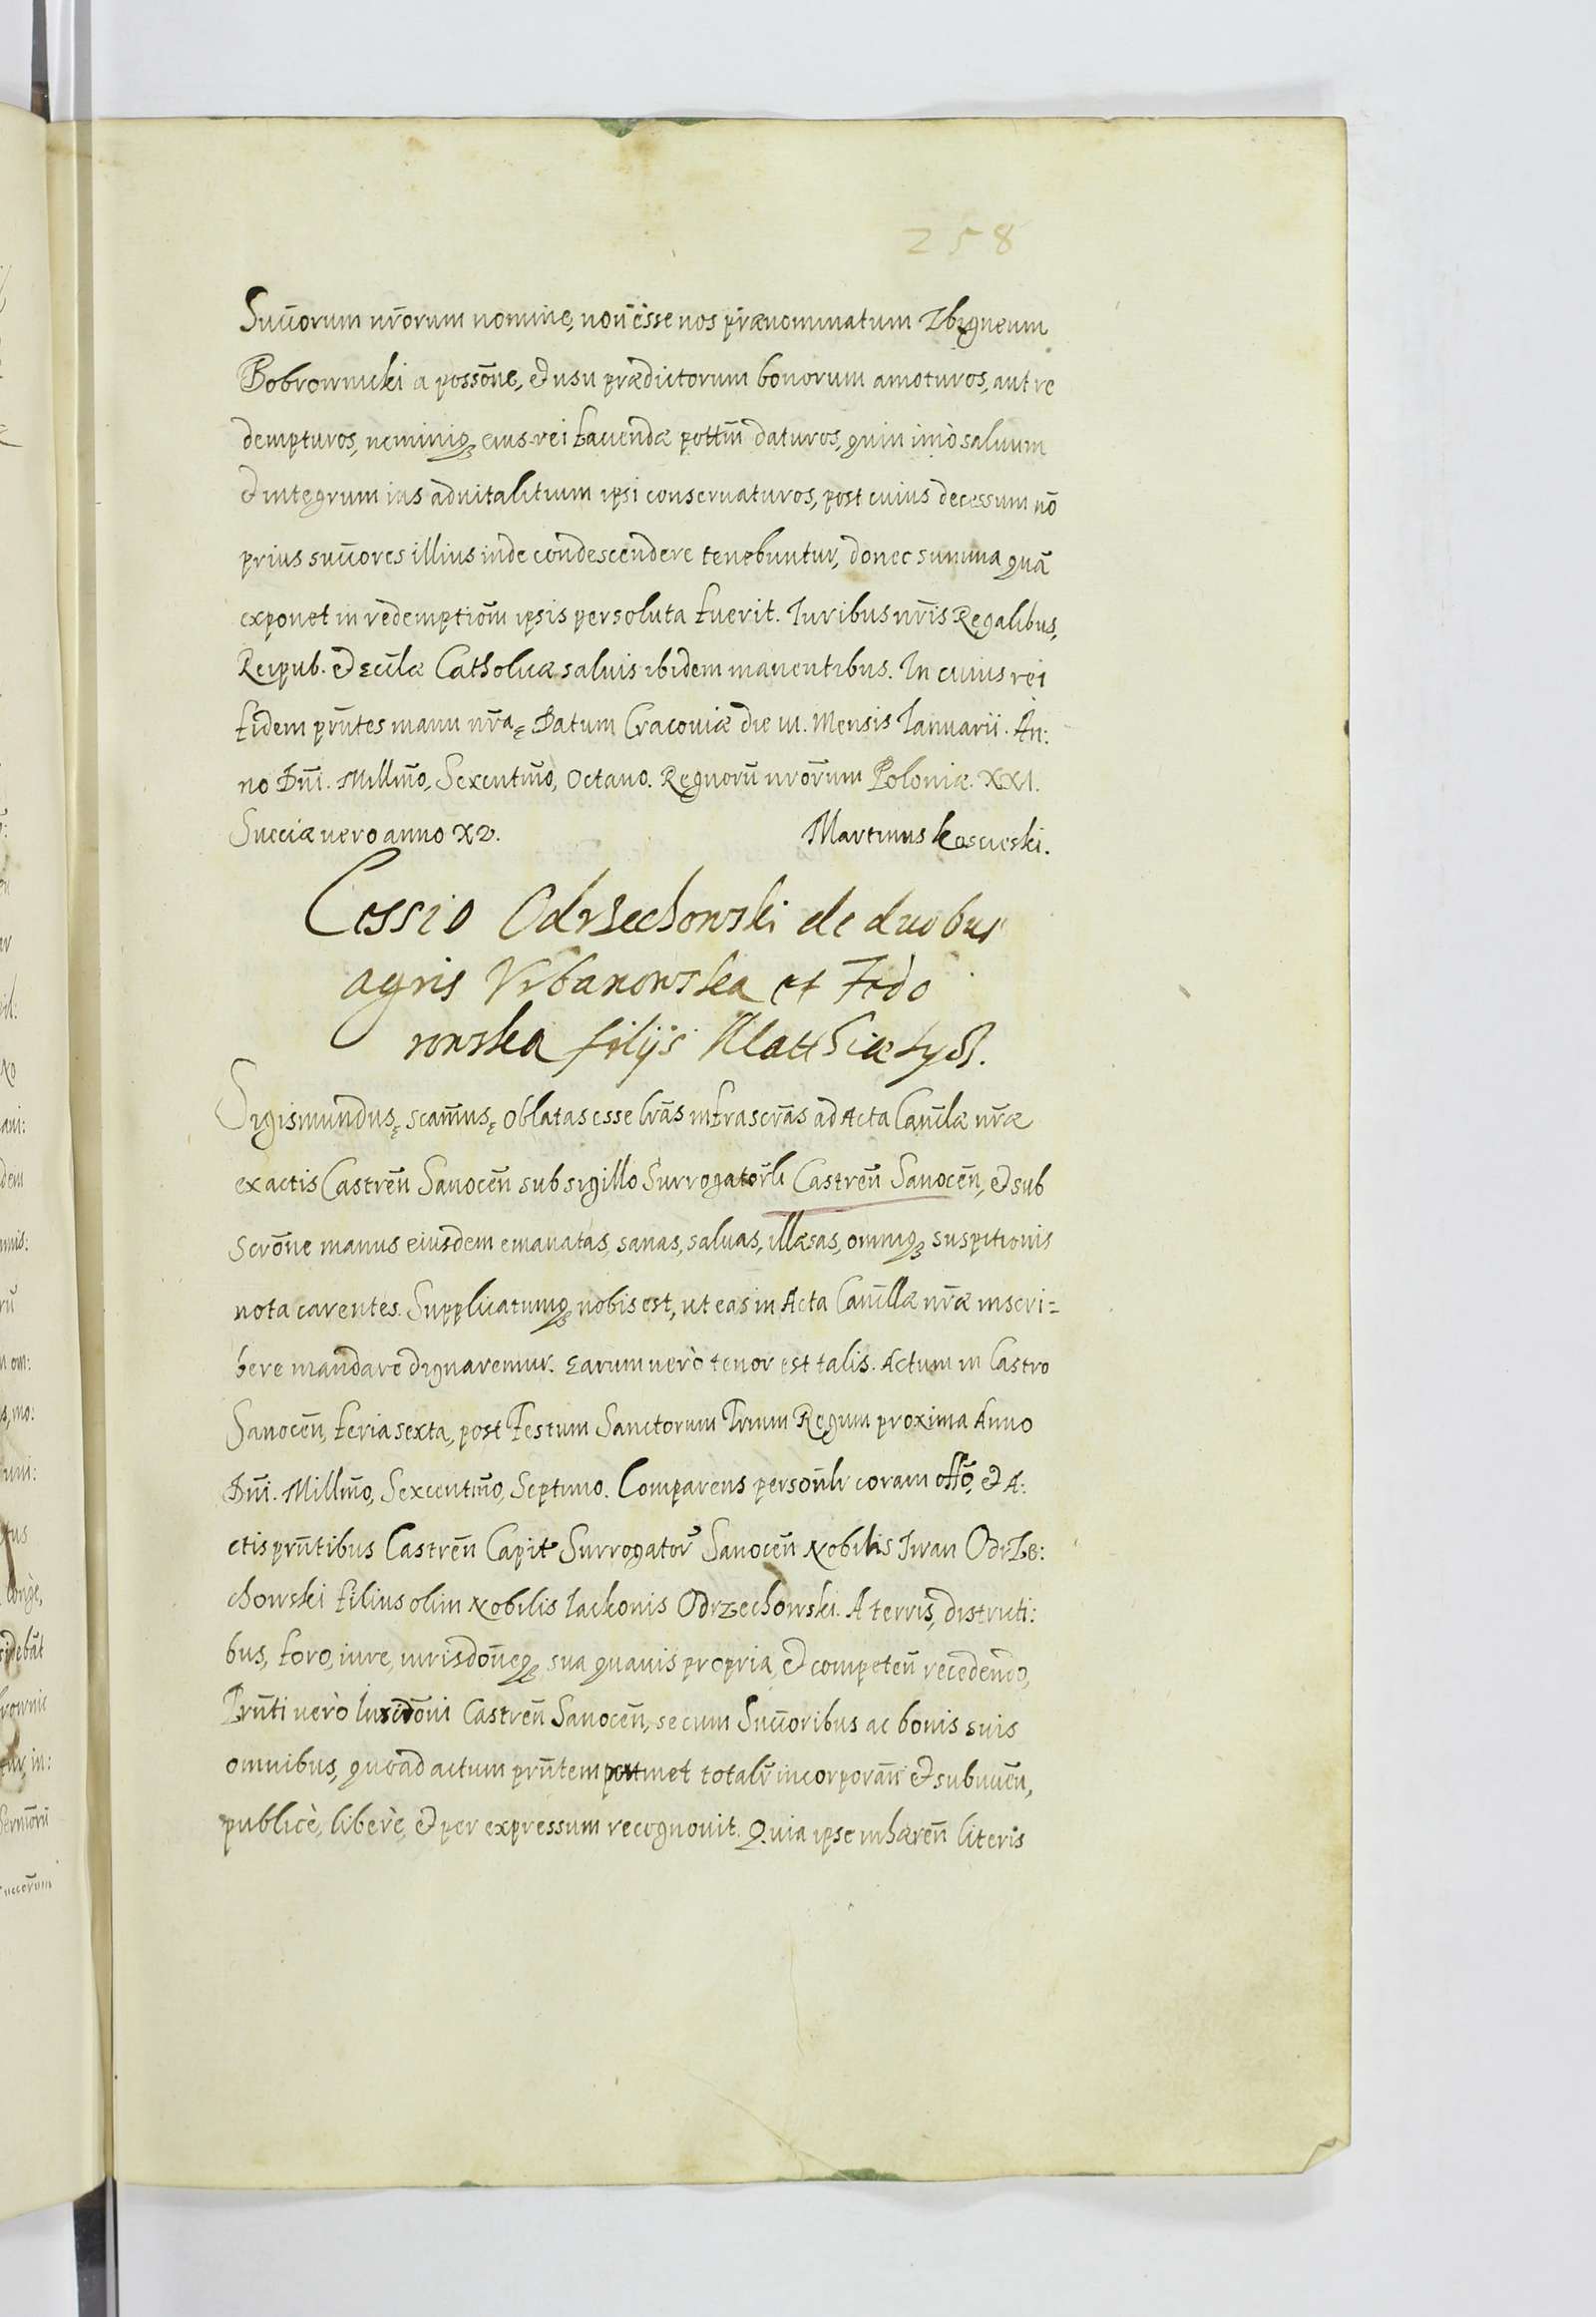 258
Succorum nrorum nomine, non esse nos prænominatum Zbigneum
Bobrownicki a possone, et usu prædictorum bonorum amoturos, aut re
dempturos, neminiq; eius rei faciendæ pottm daturos, quin imò saluum
et integrum ius aduitalitium ipsi conseruaturos, post cuius decessum nō
prius succores illius inde condescendere tenebuntur, donec summa quā
exponet in redemptiom ipsis persoluta fuerit. Iuribus nris Regalibus,
Reipub. et Ecclæ Catholicæ saluis ibidem manentibus. In cuius rei
fidem prntes manu nra ę Datum Cracoviæ die III. Mensis Ianuarii. An:
no Dni. Millmo, Sexcentmo, Octauo. Regnorū nrorum Poloniæ XXI.
Sueciæ vero anno XV.
Martinus
Cessio Odrzechowski de duobus
agris Vrbanowska et Fedo
rowska filijs Matthiæ
Sigismundus ę scamus ę oblatas esse lras infrascras ad Acta Cancllæ nræ
ex actis Castren Sanocen sub sigillo Surrogatorli Castren Sanocen, et sub
scrone manus eiusdem emanatas, sanas, saluas, illæsas, omniq; suspitionis
nota carentes. Supplicatumq; nobis est, ut eas in Acta Cancllæ nræ inscri=
bere mandare dignaremur. Earum verò tenor est talis. Actum in Castro
Sanocen, feria sexta, post Festum Sanctorum Trium Regum proxima Anno
Dni. Millmo, Sexcentmo, Septimo. Comparens personlr coram offo, et A:
ctis prntibus Castren Capit Surrogator Sanocen Nobilis Iwan Odrze:
chowski filius olim Nobilis Iackonis Odrzechowski. A terris, districti:
bus, foro, iure, iurisdoneq; sua quauis propria, et competen recedendo,
Prnti verò Iurisdoni Castren Sanocen, se cum Succoribus ac bonis suis
omnibus, quoad actum prntem pertinet totalr incorporan et subiicien,
publicè, liberè, et per expressum recognouit. Quia ipse inhæren literis